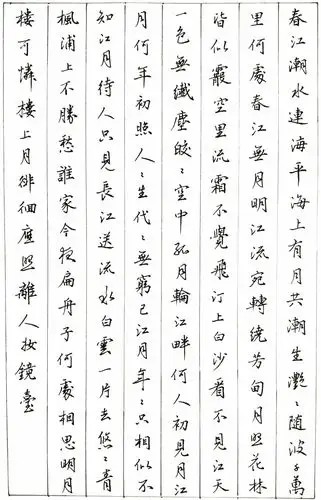 春江潮水連海平海上有月共潮生灩〻随波千萬
里何處春江無月明江流宛轉繞芳甸月照花林
皆似霰空里流霜不覺飛汀上白沙看不見江天
一色無纖塵皎〻空中孤月輪江畔何人初見月江
月何年初照人〻生代〻無窮已江月年〻只相似不
知江月待人只見長江送流水白雲一片去悠〻青
楓浦上不勝愁誰家今夜扁舟子何處相思明月
樓可憐樓上月徘徊應照離人妝鏡臺